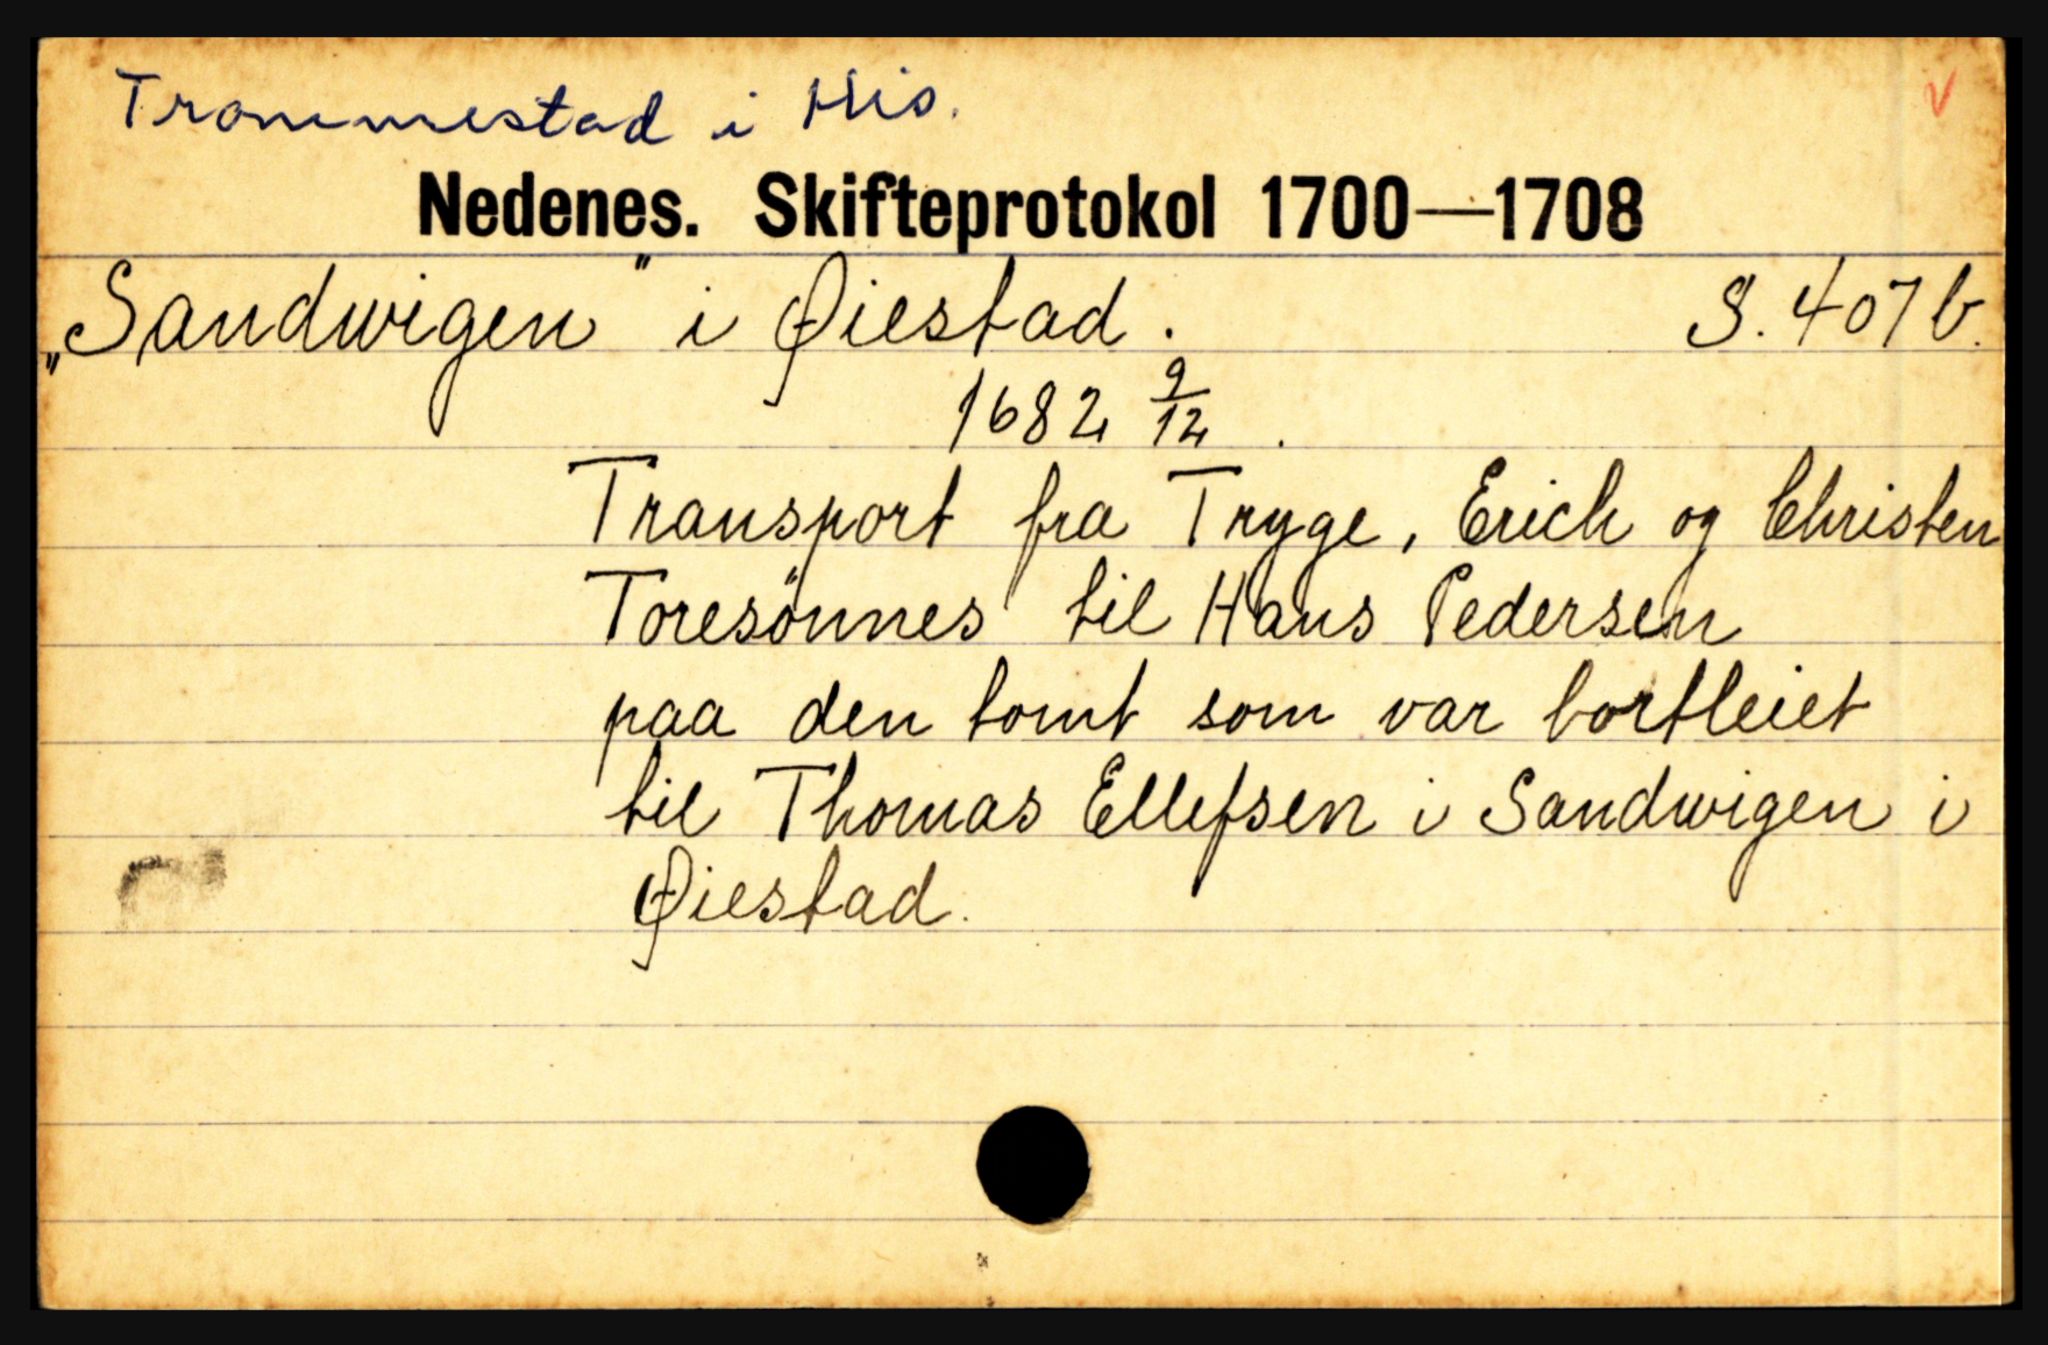 Trommestad i His.
Nedenes. Skifteprotokol 1700—1708
„Sandwigen" i Øiestad. S. 407 b.
1682 9/12.
Transport fra Tryge, Erich og Christen
Toresönnes til Hans Pedersen
paa den tomt som var bortleiet
til Thomas Ellefsen i Sandwigen i
Øiestad.